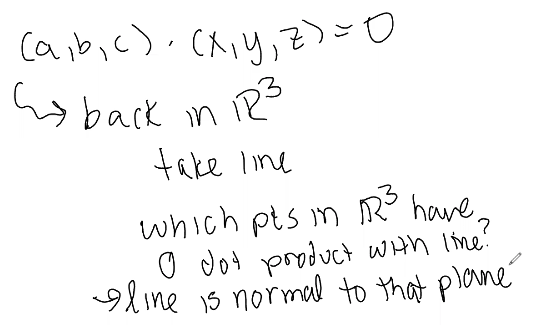 (a,b,c) · (x,y,z) = 0
↳ back in ℝ³
take line
which pts in ℝ³ have
0 dot product with line?
→ line is normal to that plane